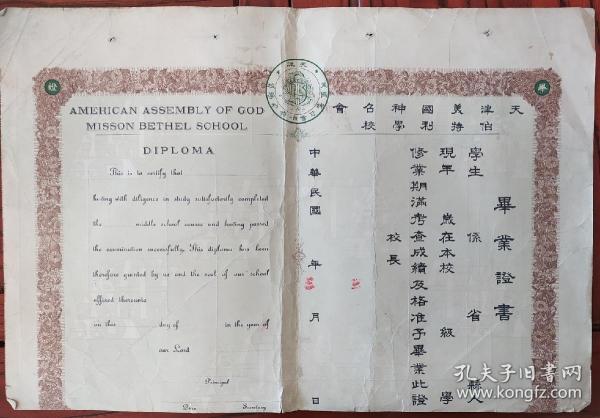 AMERICAN ASSEMBLY OF GOD
MISSON BETHEL SCHOOL
DIPLOMA
This is to certify that
having with diligence in study satisfactorily completed
the middle school course and having passed
the examination successfully. This diploma has been
therefore granted by us and the seal of our school
affixed thereunto
on this day of in the year of
our Lord
Principal
Dean Secretary
畢
證
天津美國神召會
伯特利學校
畢業證書
學生 係 省 縣人
現年 歲在本校 級 學
修業期滿考查成績及格准予畢業此證
校長
中華民國 年 月 日
孔夫子旧书网
kongfz.com